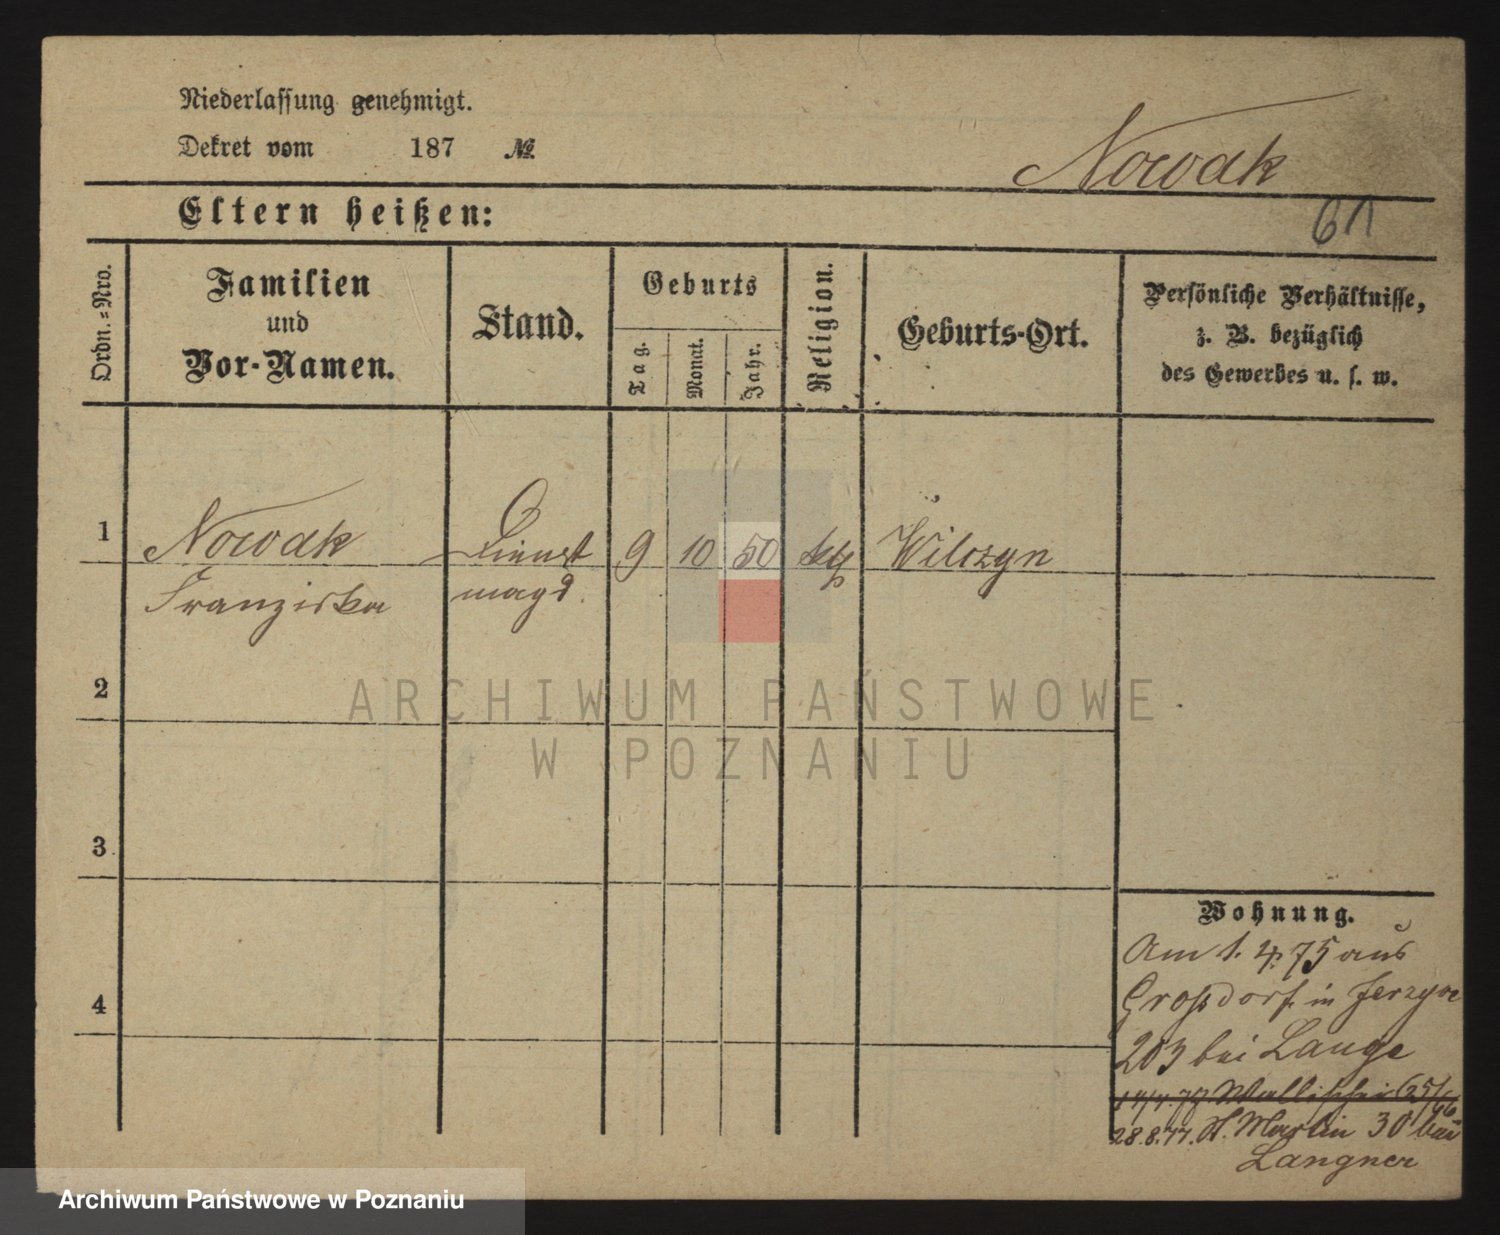 Niederlassung genehmigt.
Dekret vom 187 №
Nowak
Eltern heißen:
61
Ordn.=Nro.
Familien
und
Vor-Namen.
Stand.
Geburts
Tag.
Monat.
Jahr.
Religion.
Geburts-Ort.
Persönliche Verhältnisse,
z. B. bezüglich
des Gewerbes u. s. w.
1 Nowak Dienst 9 10 50 kth Wilczyn
Franziska magd.
2
3
4
Wohnung.
Am 1. 4. 75 aus
Großdorf in Jerzyce
203 bei Lange
Wallischei 65/66
28.8.77. St. Martin 30 bei
Langner
ARCHIWUM PAŃSTWOWE
W POZNANIU
Archiwum Państwowe w Poznaniu